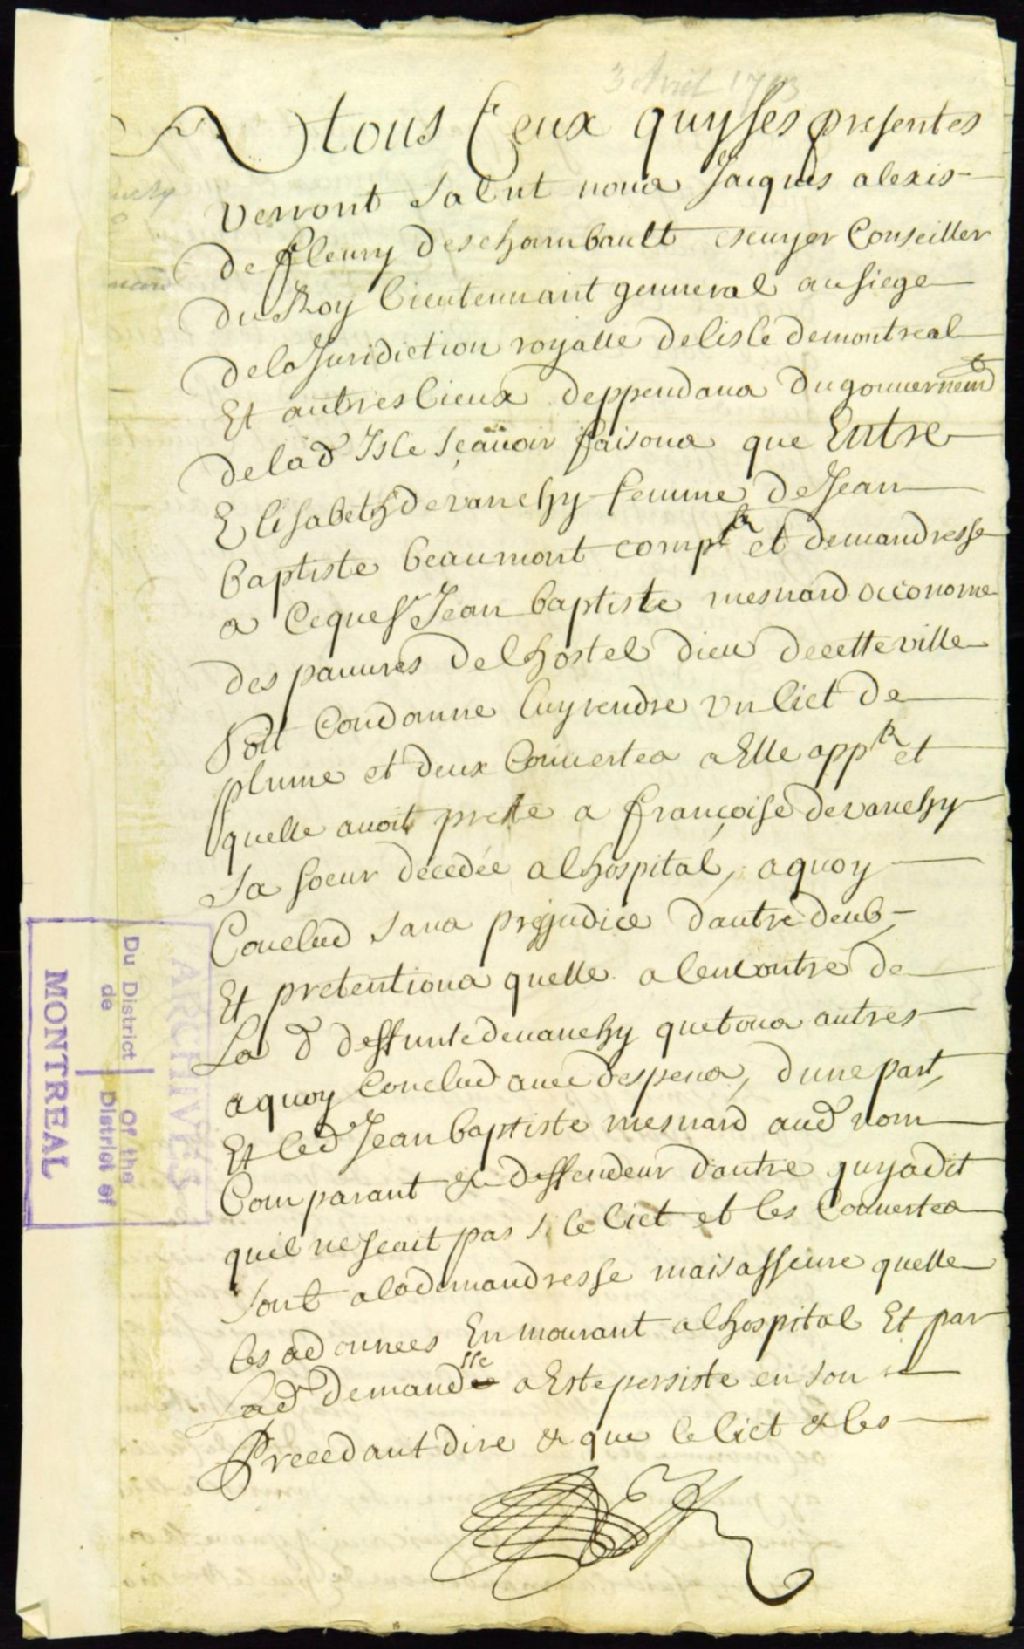 3 Avril 1713
A tous Ceux quy ses presentes
verront salut nous Jacques alexis
de fleury deschambault escuyer Conseiller
du Roy lieutennant genneral au siege
dela Juridiction royalle delisle demontreal
Et autres lieux deppendans du gouvernem.t
dela d. Isle sçavoir faisons que Entre
Elisabeth devanchy femme de Jean
baptiste beaumont comp.te et demandresse
a Ceque s.r Jean baptiste mesnard oeconome
des pauvres del hostel dieu decetteville
Soit Condamné luy rendre un lict de
plume et deux Couvertes a Elle app.t et
quelle avoit preste a françoise devanchy
sa soeur décedée al hospital, aquoy
Conclud sans prejudice dautre deub
Et pretentions quelle alencontre de
La d. deffunte devanchy quetous autres
aquoy conclud avec despens, d'une part,
Et led. Jean baptiste mesnard aud. nom
Comparant & deffendeur dautre quy a dit
quil ne scait pas si le lict et les Couvertes
sont alademandresse mais asseure quelle
les adonnees En mourant alhospital Et par
Lad. demand.sse a Este persiste en son
Precedant dire & que le lict & les
ARCHIVES
Du District | Of the
de | District of
MONTREAL